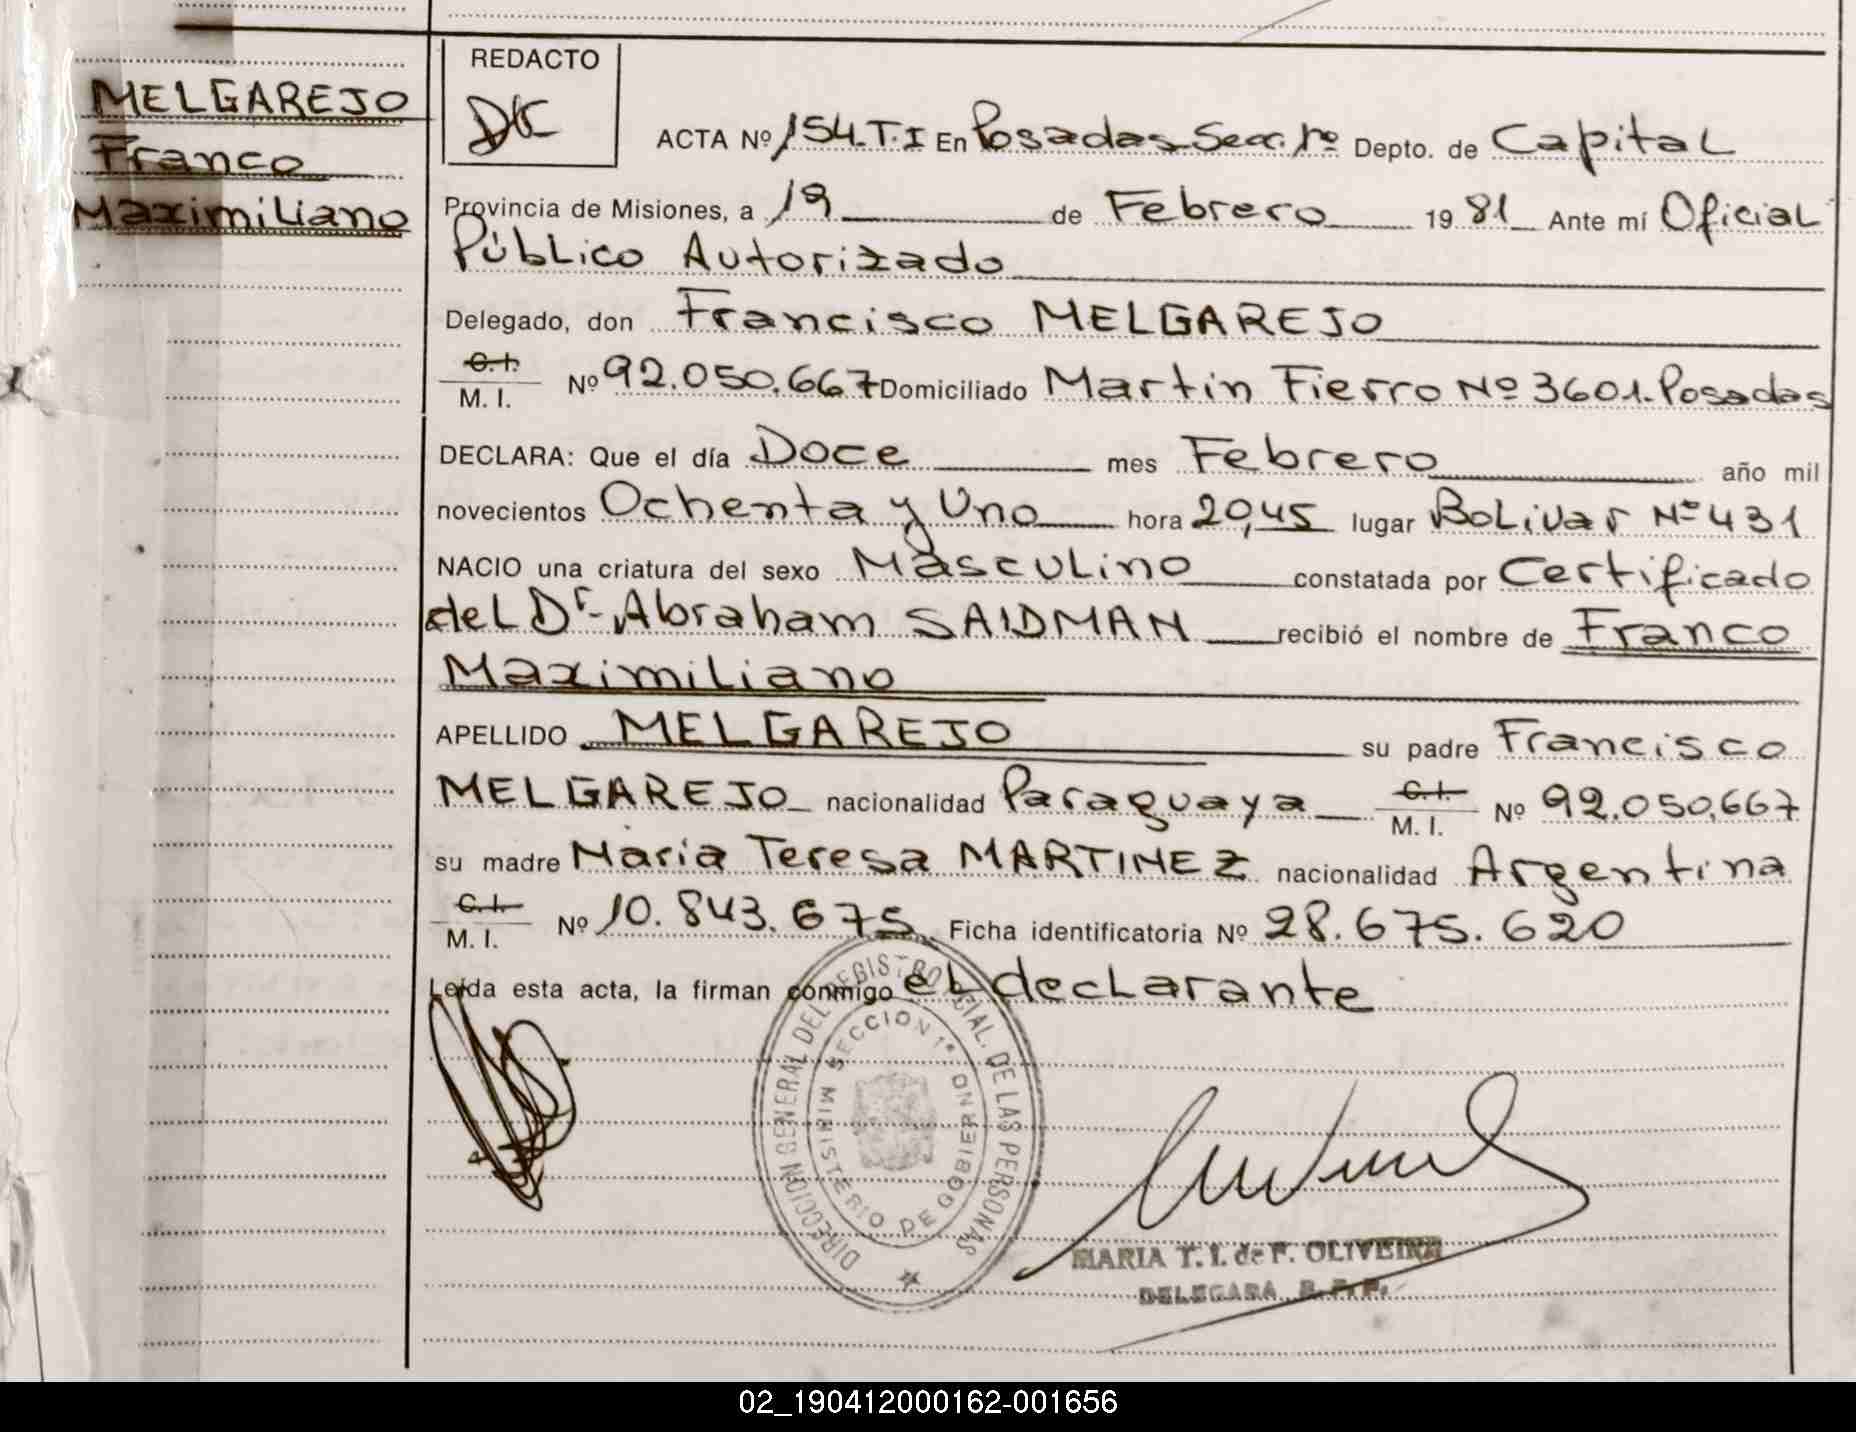 MELGAREJO
Franco
Maximiliano
REDACTO
ACTA Nº 154.T.I En Posadas Secc. 1º Depto. de Capital
Provincia de Misiones, a 19 de Febrero 1981 Ante mí Oficial
Público Autorizado
Delegado, don Francisco MELGAREJO
C.I.
M. I. Nº 92.050.667 Domiciliado Martin Fierro Nº 3601. Posadas
DECLARA: Que el día Doce mes Febrero año mil
novecientos Ochenta y Uno hora 20,45 lugar Bolivar Nº 431
NACIO una criatura del sexo Masculino constatada por Certificado
del Dr. Abraham SAIDMAN recibió el nombre de Franco
Maximiliano
APELLIDO MELGAREJO su padre Francisco
MELGAREJO nacionalidad Paraguaya C.I. M. I. Nº 92.050.667
su madre Maria Teresa MARTINEZ nacionalidad Argentina
C.I.
M. I. Nº 10.843.675 Ficha identificatoria Nº 28.675.620
Leída esta acta, la firman conmigo el declarante
DIRECCION GENERAL DEL REGISTRO PCIAL. DE LAS PERSONAS
SECCION 1ª
MINISTERIO DE GOBIERNO
MARIA T. I. de F. OLIVEIRA
DELEGADA R. P. P.
02_190412000162-001656